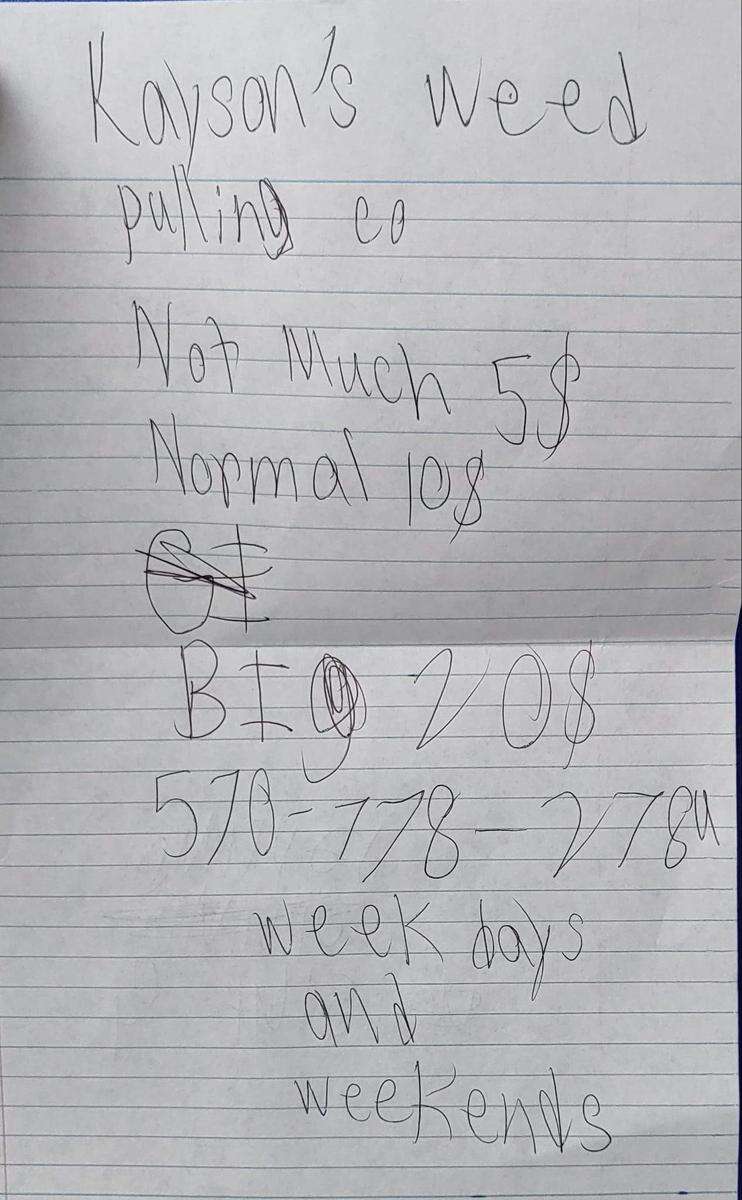 Kayson's weed
pulling co
Not Much 5$
Normal 10$
BIg 20$
570-778-2784
week days
and
weekends